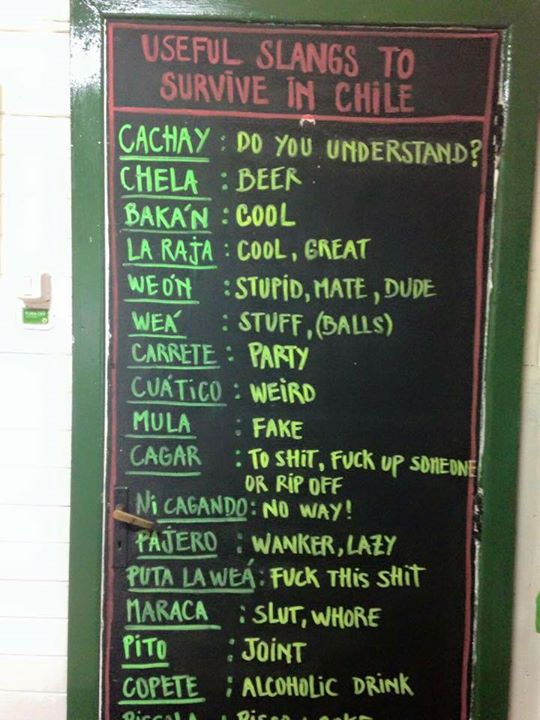 USEFUL SLANGS TO
SURVIVE IN CHILE
CACHAY : DO YOU UNDERSTAND?
CHELA : BEER
BAKÁN : COOL
LA RAJA : COOL, GREAT
WEÓN : STUPID, MATE, DUDE
WEÁ : STUFF, (BALLS)
CARRETE : PARTY
CUÁTICO : WEIRD
MULA : FAKE
CAGAR : TO SHIT, FUCK UP SOMEONE
OR RIP OFF
NI CAGANDO : NO WAY!
PAJERO : WANKER, LAZY
PUTA LA WEÁ : FUCK THIS SHIT
MARACA : SLUT, WHORE
PITO : JOINT
COPETE : ALCOHOLIC DRINK